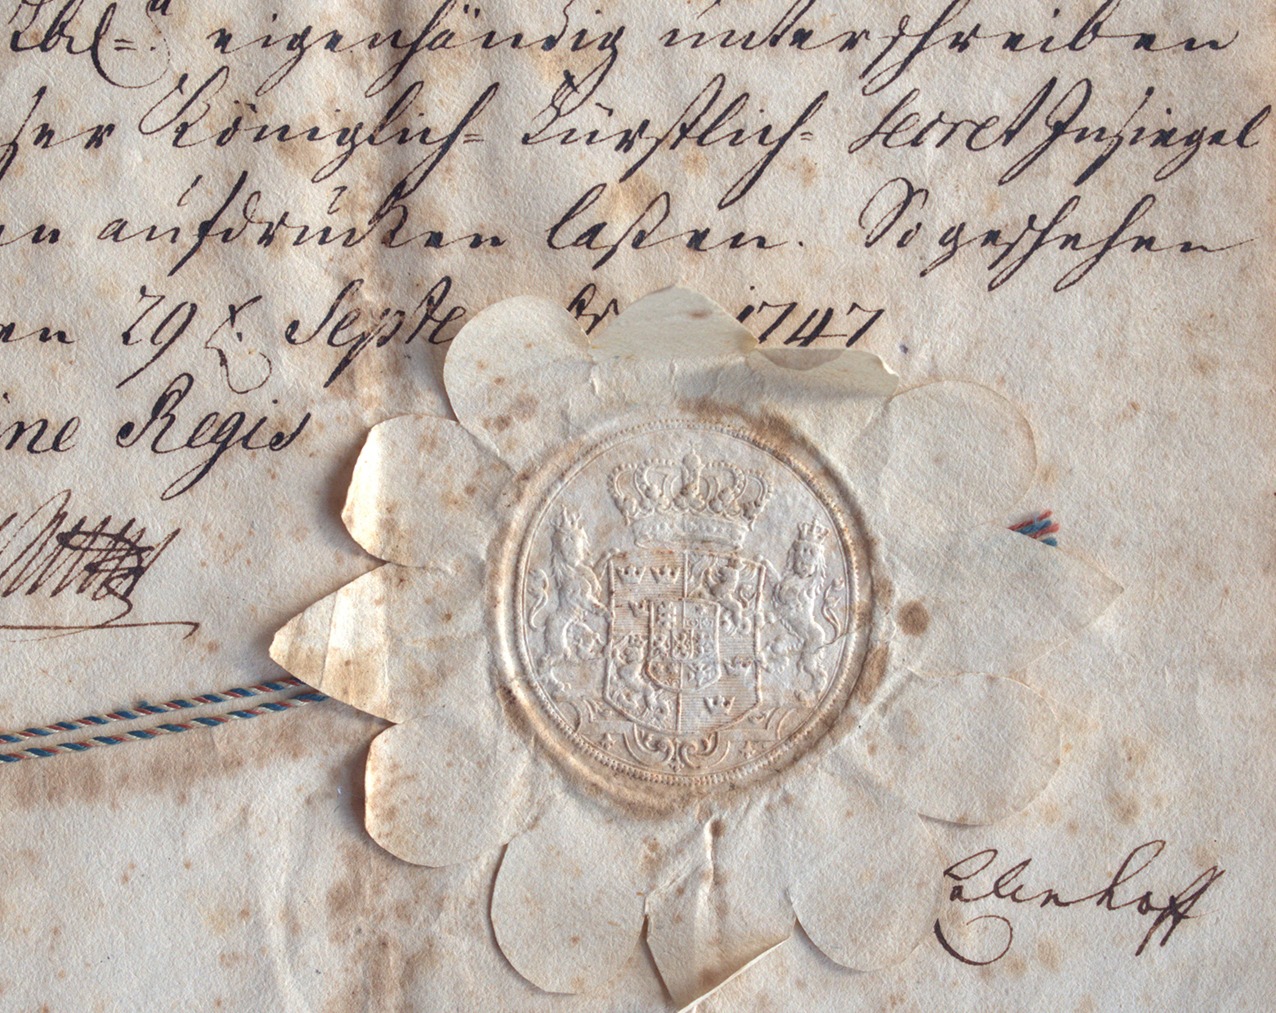 eigenhändig unterschreiben
ser Königlich= Fürstlich= Secret Insiegel
en aufdrücken laßen. So geschehen
en 29 Septe br 1747
ine Regis